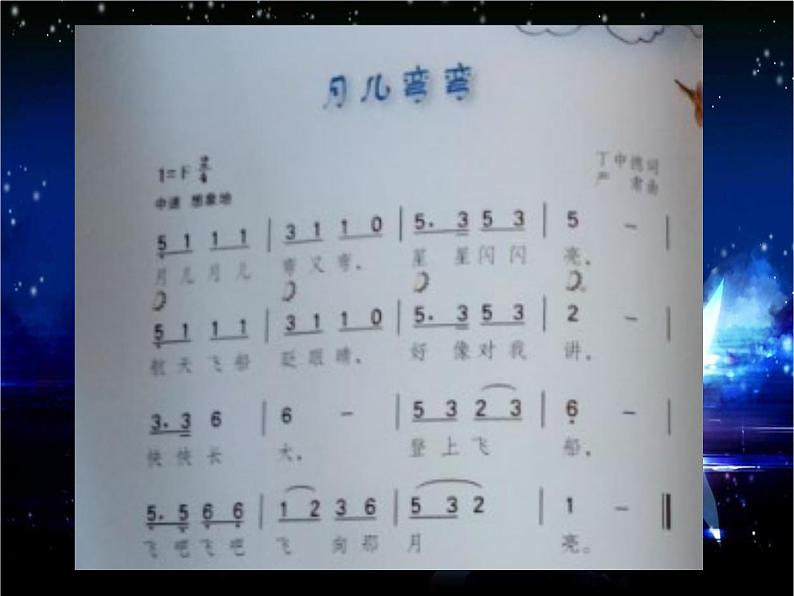 月儿弯弯
1=F 2/4
丁中德词
严肃曲
中速 想象地
5 1 1 1 | 3 1 1 0 | 5. 3 5 3 | 5 － |
月儿月儿 弯又弯， 星星闪闪 亮，
5 1 1 1 | 3 1 1 0 | 5. 3 5 3 | 2 － |
航天飞船 眨眼睛， 好像对我 讲，
3. 3 6 | 6 － | 5 3 2 3 | 6 － |
快快长 大， 登上飞 船，
5. 5 6 6 | 1 2 3 6 | 5 3 2 | 1 － ‖
飞吧飞吧 飞向那 月 亮。